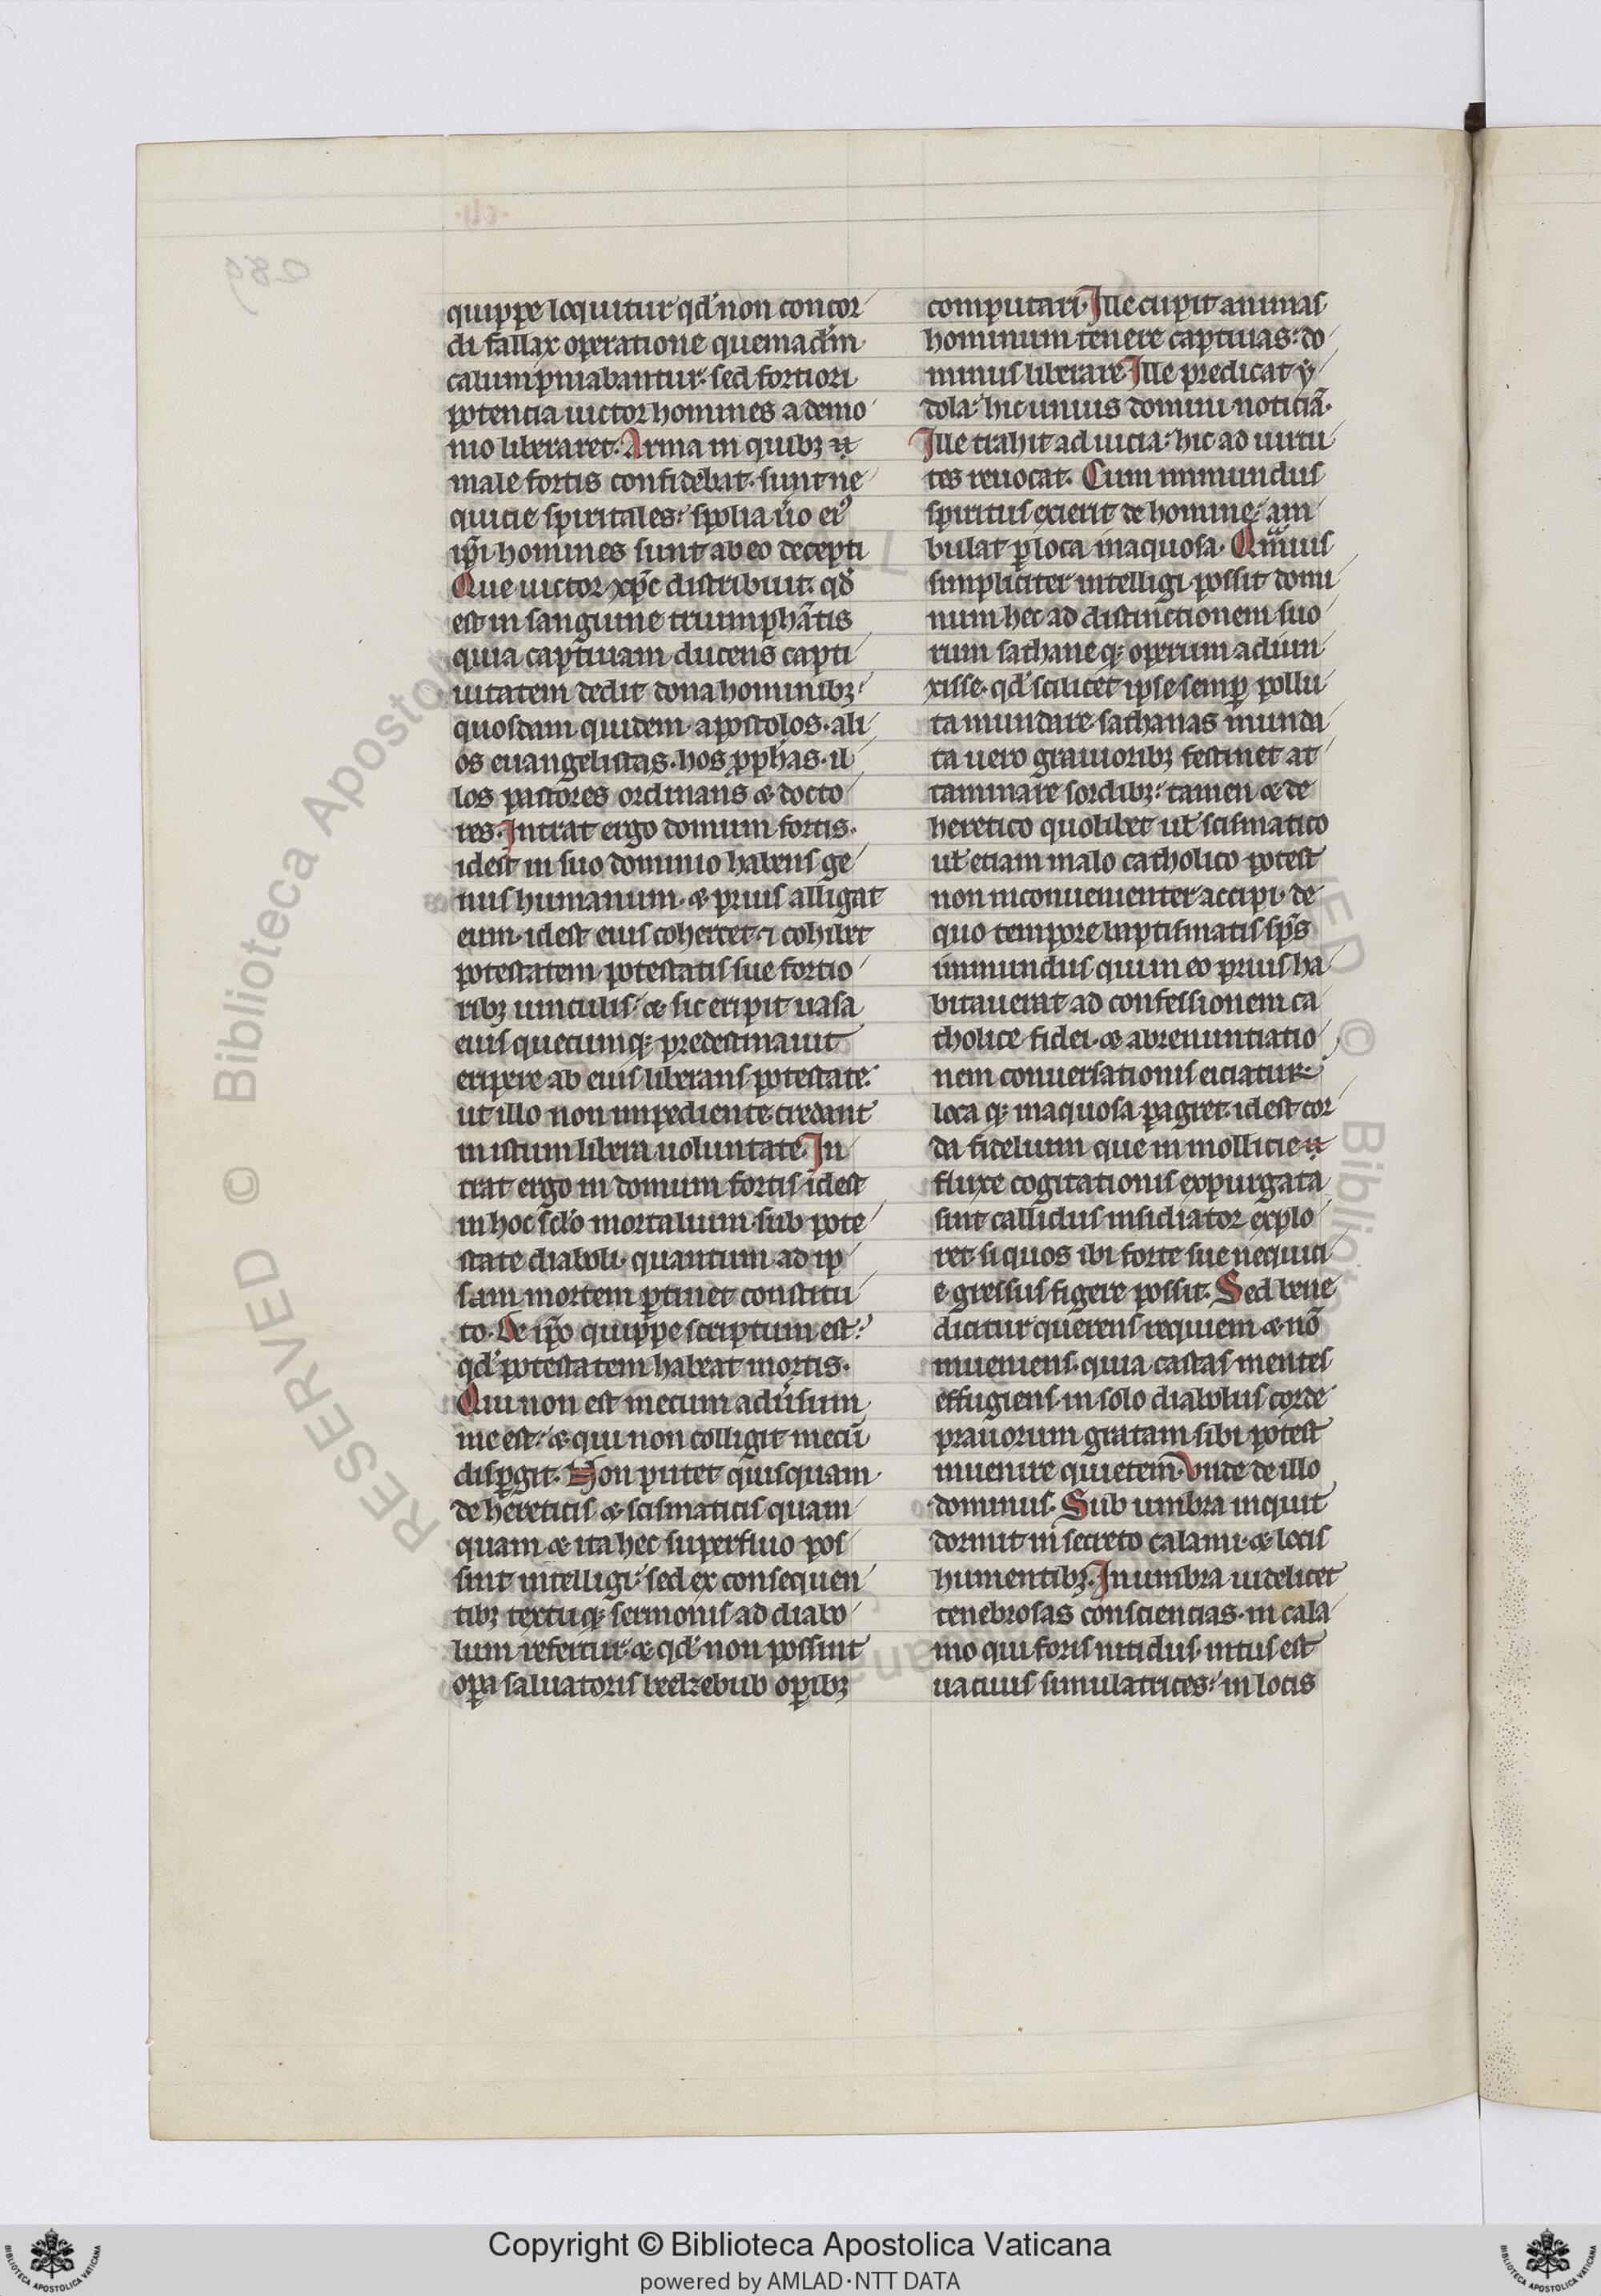 quippe loquitur qd' non concor
di fallax operatione quemadm̄
calumpniabantur. sed fortiori
potencia uictor homines a demo
nio liberaret. Arma in quibꝫ
male fortis confidebat. sunt ne
quicie spiritales. spolia ūo eiꝰ
ip̄i homines sunt ab eo decepti
Que uictor xp̄c distribuit. qd'
est in sanguine triumphātis
quia captiuam ducens capti
uitatem dedit dona hominibꝫ.
quosdam quidem apostolos. ali
os euangelistas. hos ꝓphas. il
los pastores ordinans & docto
res. Intrat ergo domum fortis.
idest in suo dominio habens ge
nus humanum. & prius alligat
eum. idest eius cohercet ⁊ cohibet
potestatem. potestatis sue fortio
ribꝫ uinculis. & sic eripit uasa
eius quecumqꝫ predestinauit
eripere ab eius liberans potestate.
ut illo non impediente credant
in istum libera uoluntate. In
trat ergo in domum fortis idest
in hoc sc̄lo mortalium. sub pote
state diaboli. quantum ad ip
sam mortem ꝑtinet constitu
to. De ip̄o quippe scriptum est.
qd' potestatem habeat mortis.
Qui non est mecum aduſum
me est. & qui non colligit mecū
disꝑgit. Non putet quisquam
de hereticis & scismaticis quam
quam & ita hec superfluo pos
sint intelligi. sed ex consequen
tibꝫ textuqꝫ sermonis ad diabo
lum refertur. & qd' non possint
oꝑa saluatoris beelzebub oꝑibꝫ
computari. Ille cupit animas
hominum tenere captiuas. do
minus liberare. Ille predicat ẏ
dola. hic unius domini noticiā.
Ille trahit ad uicia. hic ad uirtu
tes reuocat. Cum inmundus
spiritus exierit de homine. am
bulat ꝑ loca inaquosa. Qmuis
simpliciter intelligi possit domi
num hec ad distinctionem suo
rum sathaneqꝫ operum adiun
xisse. qd' scilicet ipse semꝑ pollu
ta mundare. sathanas munda
ta uero grauioribꝫ festinet at
taminare sordibꝫ. tamen & de
heretico quolibet ul' scismatico
ul' etiam malo catholico potest
non inconuenienter accipi. de
quo tempore baptismatis sp̄s
inmundus qui in eo prius ha
bitauerat ad confessionem ca
tholice fidei. & abrenuntiatio
nem conuersationis eiciatur.
locaqꝫ inaquosa ꝑagret. idest cor
da fidelium que in mollicie
fluxe cogitationis expurgata
sint callidus insidiator explo
ret. si quos ibi forte sue nequici
e gressus figere possit. Sed bene
dicitur querens requiem & nō
inueniens. quia castas mentes
effugiens. in solo diabolus corde
prauorum gratam sibi potest
inuenire quietem. Vnde de illo
dominus. Sub umbra inquit
dormit in secreto calami. & locis
humentibꝫ. In umbra uidelicet
tenebrosas consciencias. in cala
mo qui foris nitidus. intus est
uacuus simulatrices. in locis
Copyright © Biblioteca Apostolica Vaticana
powered by AMLAD·NTT DATA